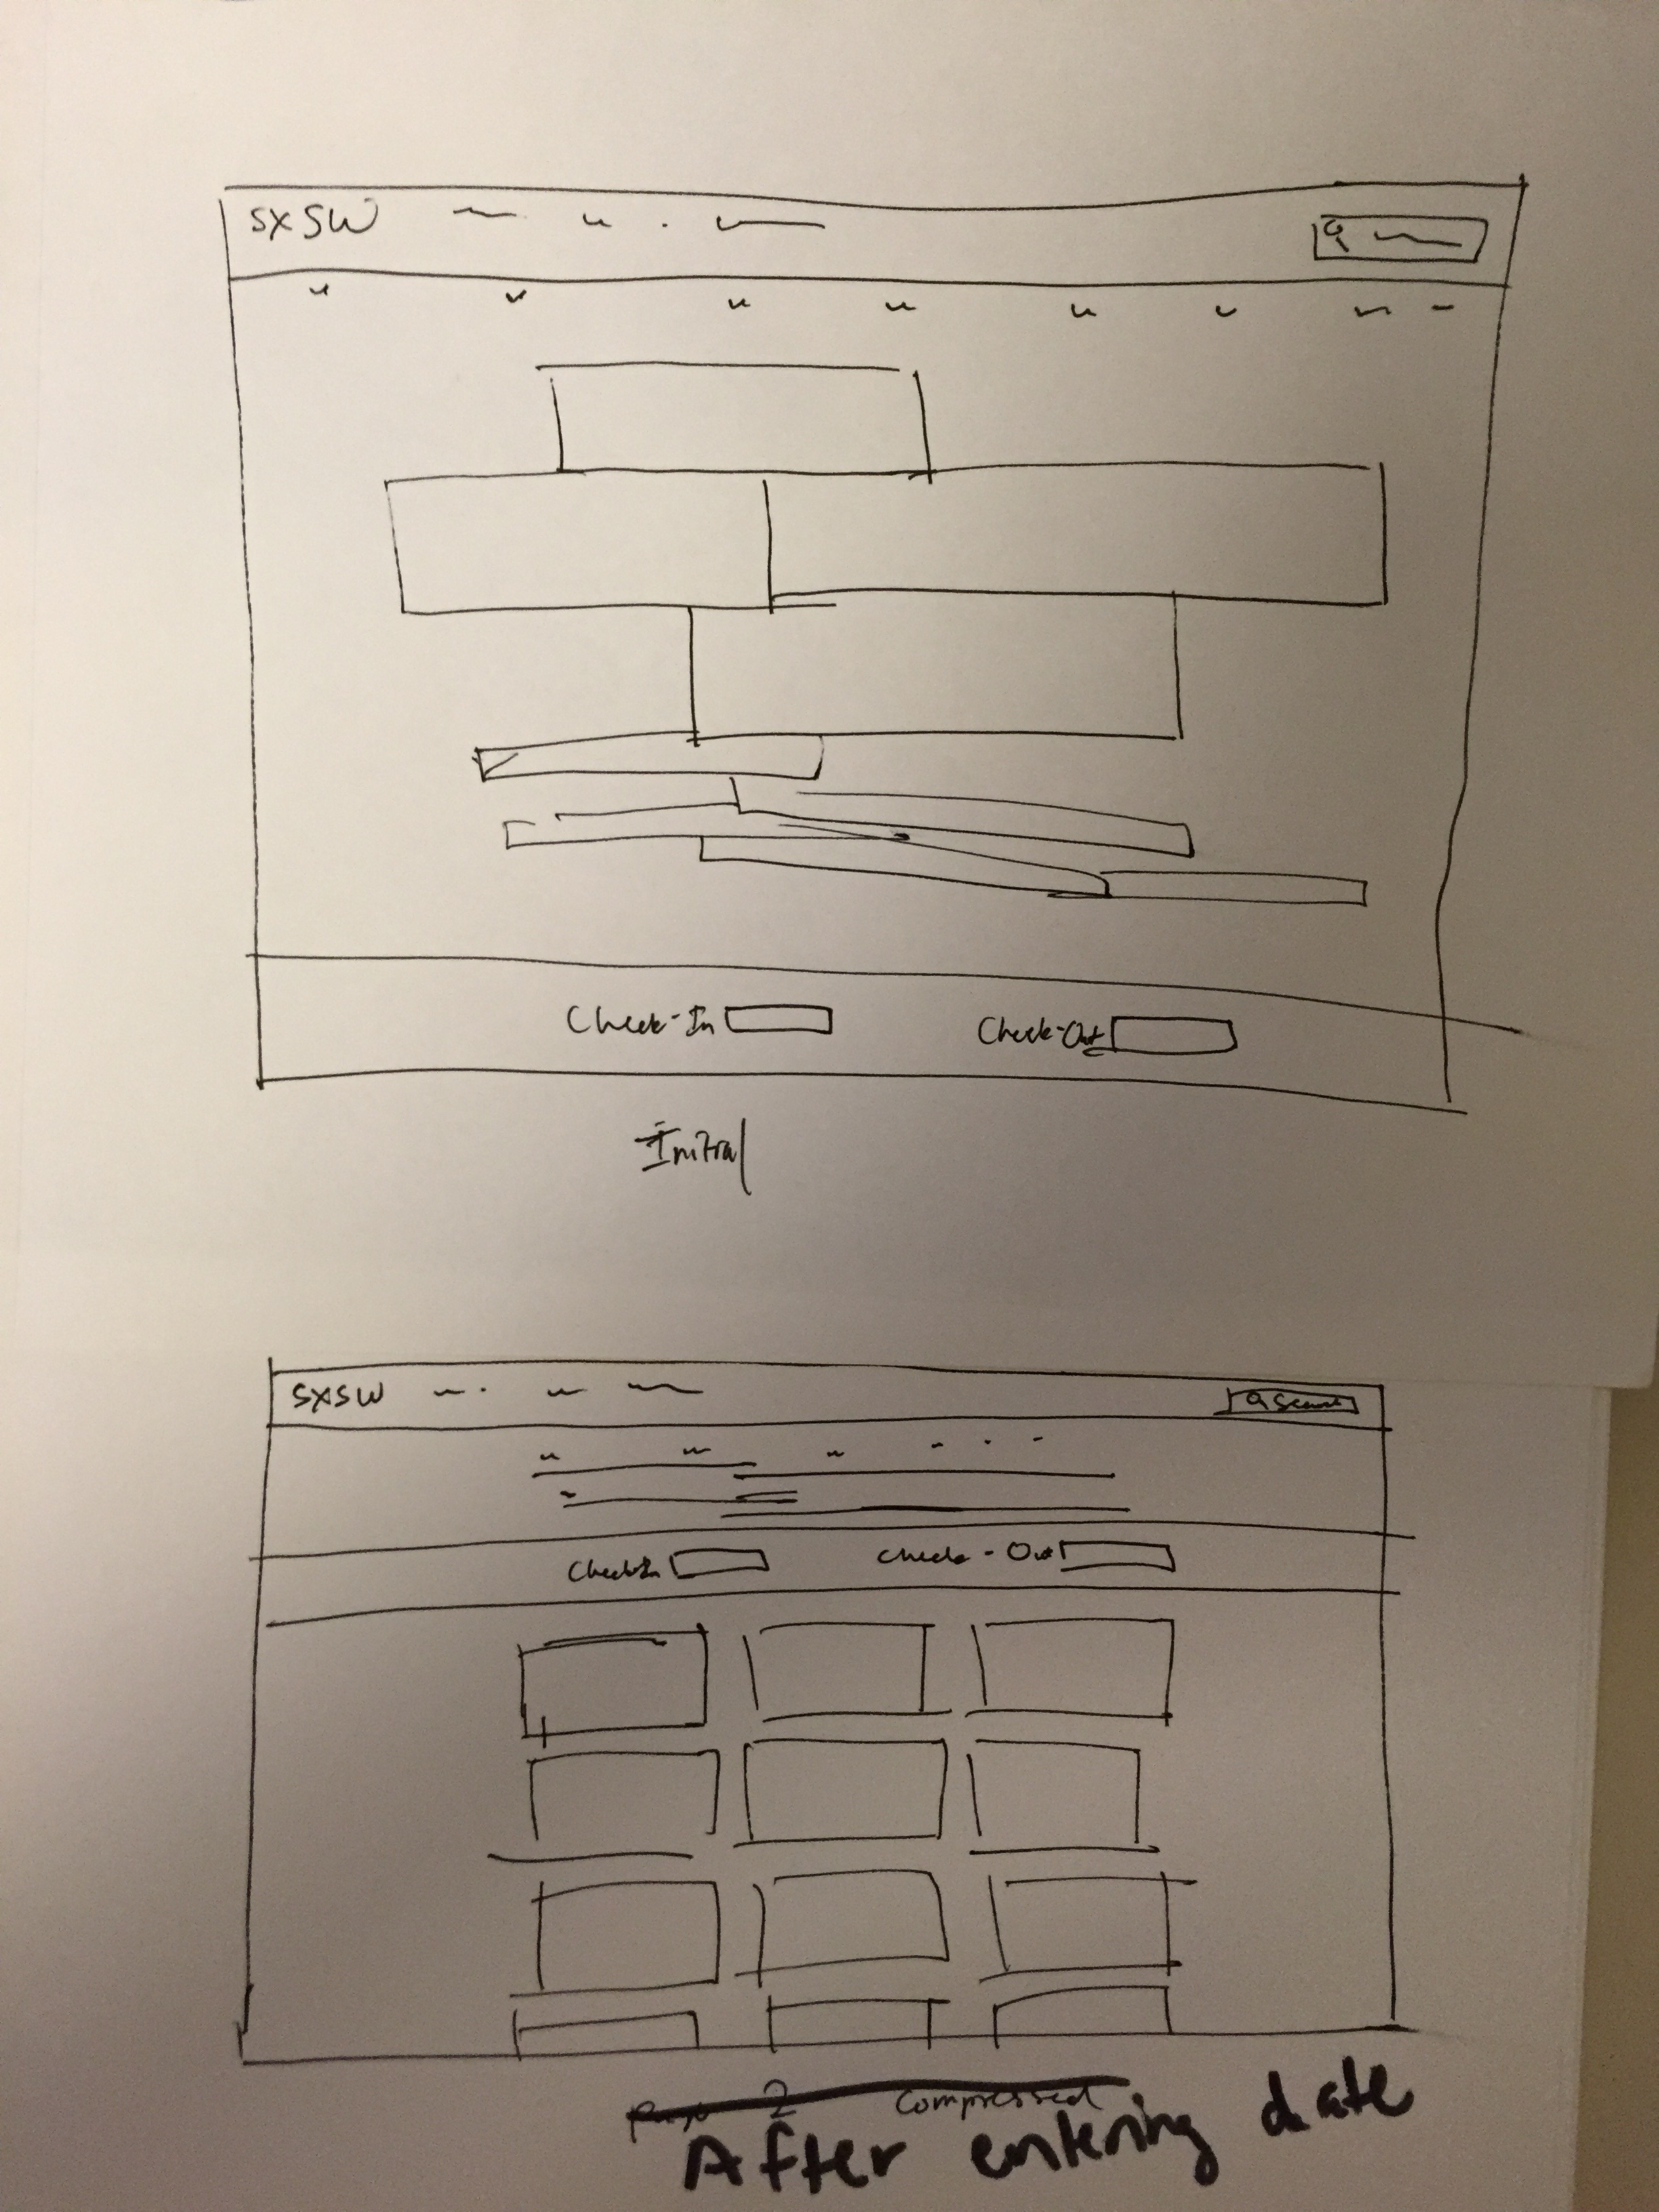 SXSW
Check-In Check-Out
Initial
SXSW Search
Check-In Check-Out
page 2 compressed
After entering date